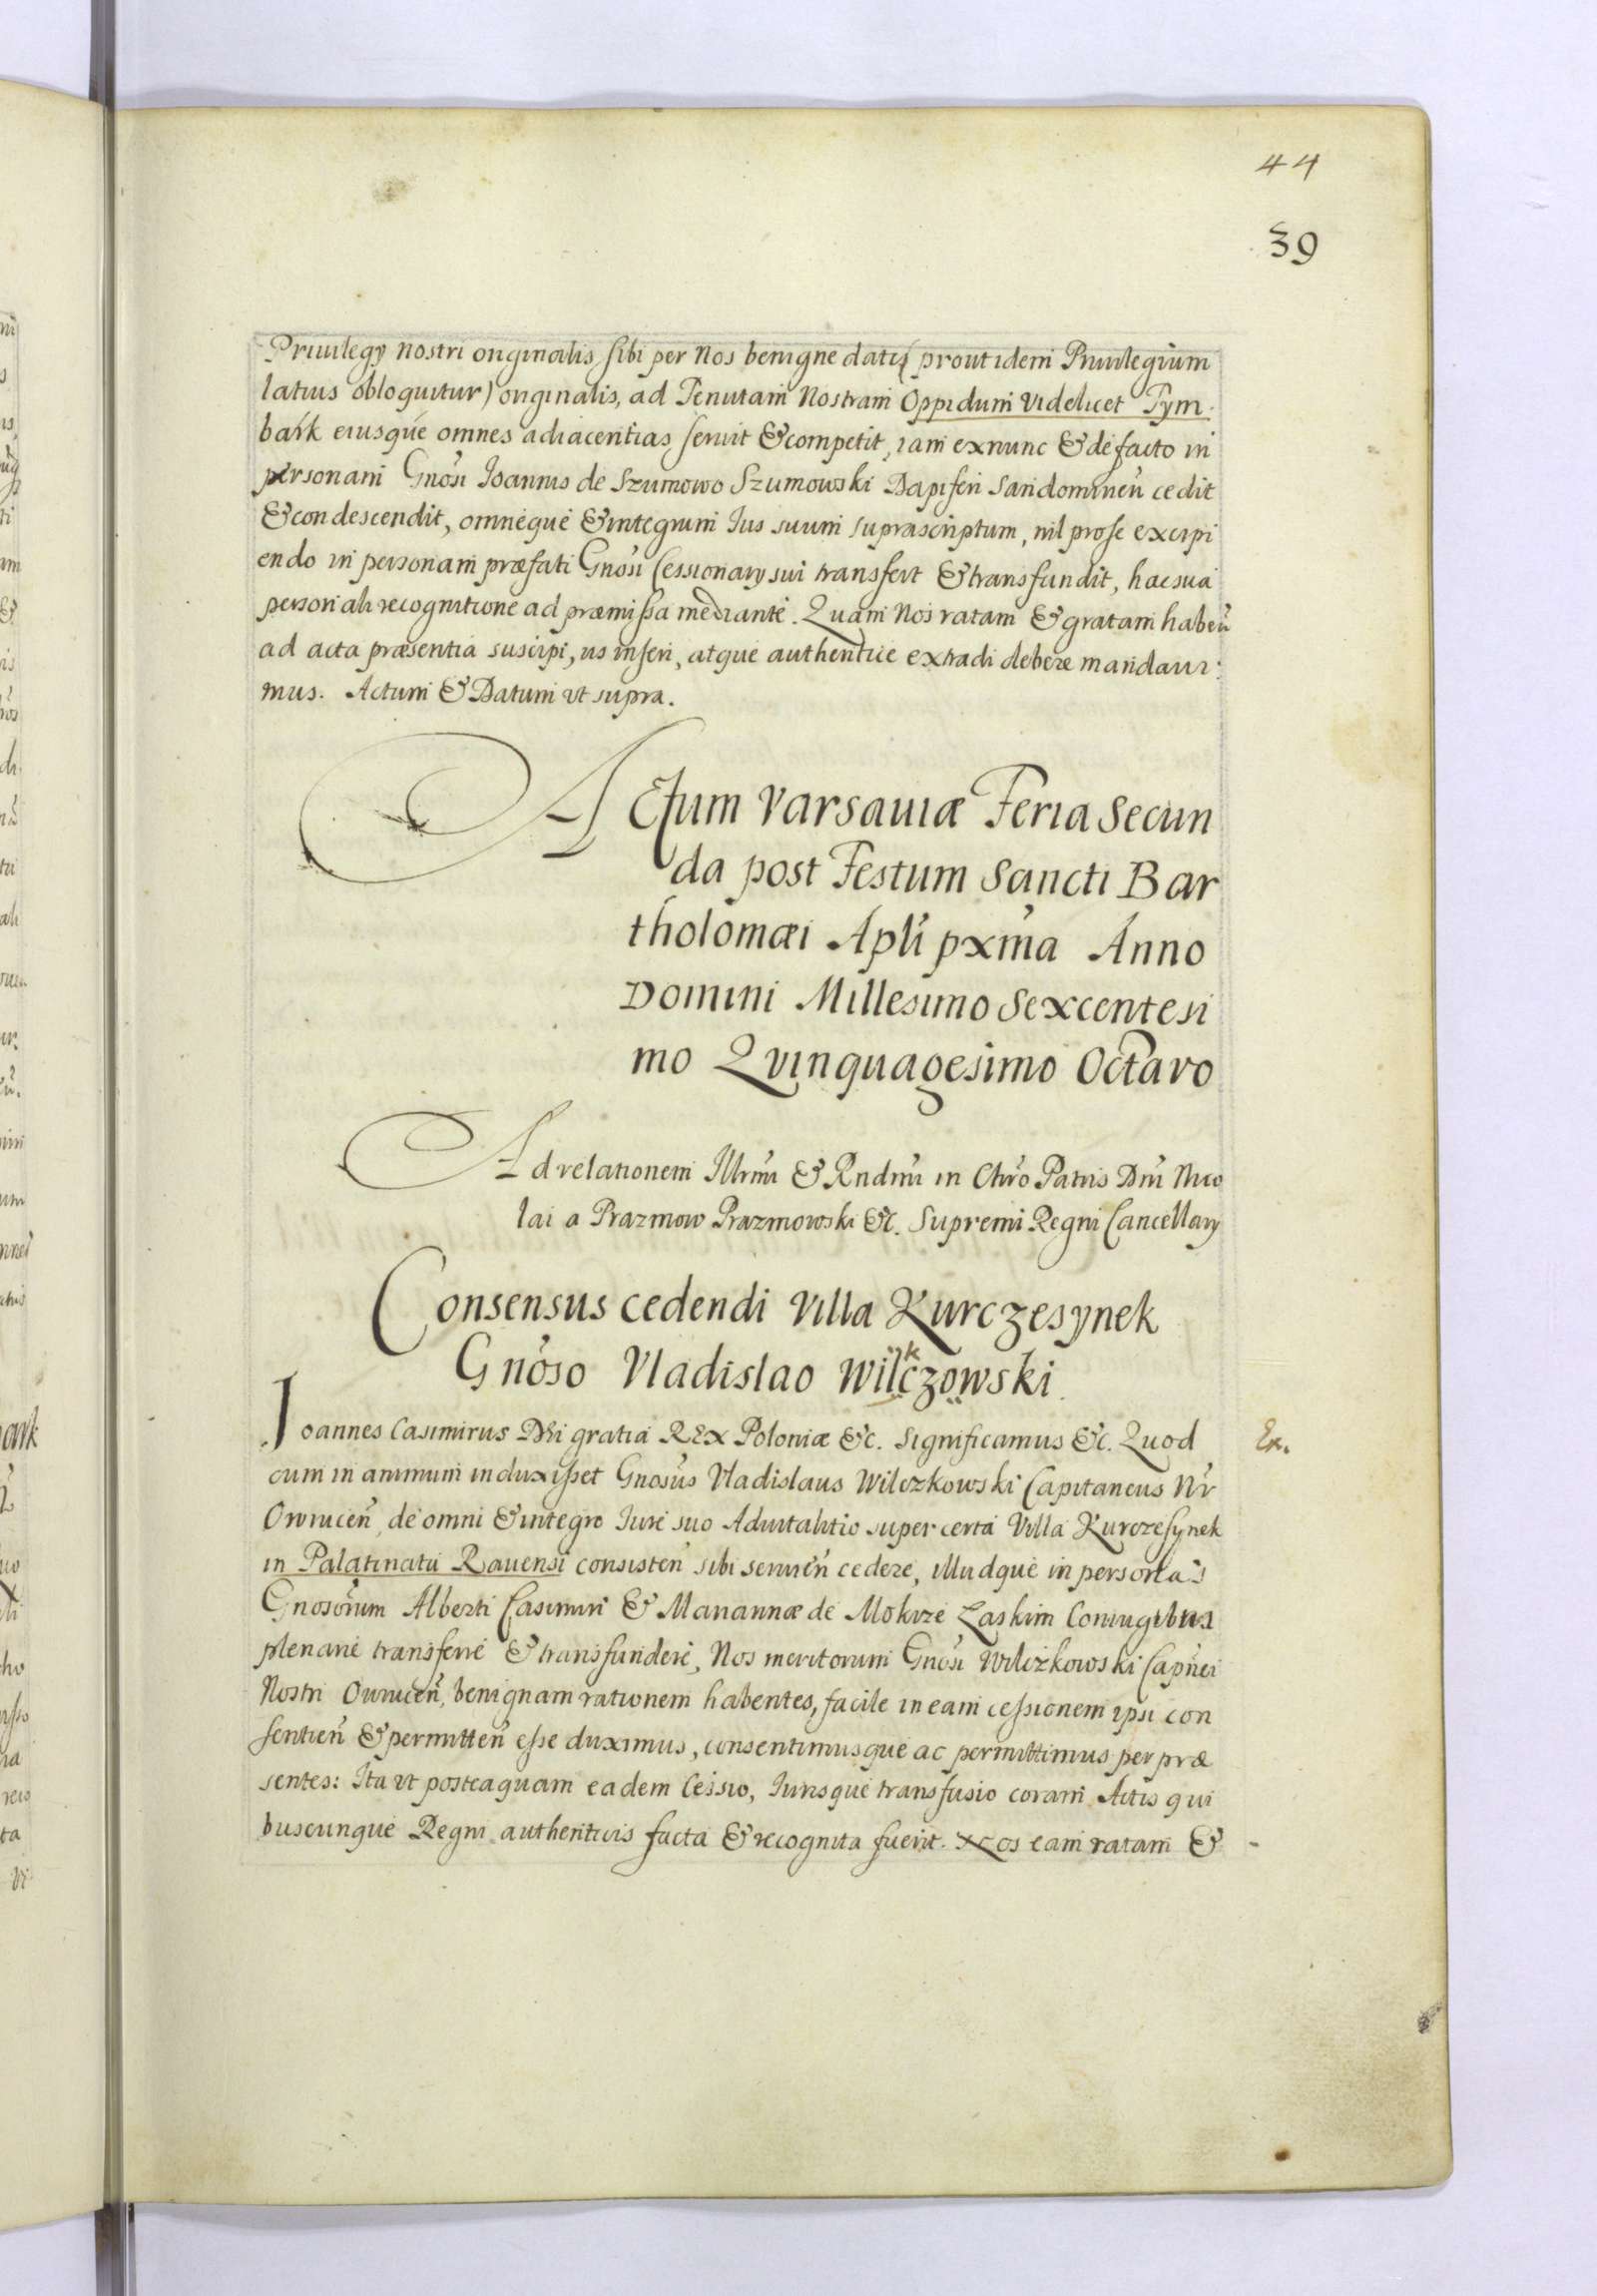 44
39
Priuilegy Nostri originalis sibi per Nos benigne dati (prout idem Priuilegium
latius obloquitur) originalis, ad Tenutam Nostram Oppidum videlicet Tym
bark eiusque omnes adiacentias seruit & competit, iam exnunc & de facto in
personam Gnosi Ioannis de Szumowo Szumowski Dapiferi Sandomirien cedit
& condescendit, omneque & integrum Ius suum suprascriptum, nil pro se excipi
endo in personam præfati Gnosi Cessionary sui transfert & transfundit, hac sua
personali recognitione ad præmissa mediante. Quam Nos ratam & gratam haben
ad acta præsentia suscipi, iis inseri, atque authentice extradi debere mandaui:
mus. Actum & Datum vt supra.
Actum Varsauiæ Feria Secun
da post Festum Sancti Bar
tholomæi Apli pxma Anno
Domini Millesimo Sexcentesi
mo Qvinquagesimo Octavo
Ad relationem Illrmi & Rndmi in Chro Patris Dni Nico
lai a Prazmow Prazmowski &c. Supremi Regni Cancellary
Consensus cedendi Villa Kurczesynek
Gnoso Vladislao Wilczkowski
Ioannes Casimirus Dei gratia REX Poloniæ &c. Significamus &c. Quod
Ex.
cum in animum induxisset Gnosus Vladislaus Wilczkowski Capitaneus Nr
Owrucen, de omni & integro Iure suo Aduitalitio super certa Villa Kurczesynek
in Palatinatu Rauensi consisten sibi seruien cedere, illudque in personas
Gnosorum Alberti Casimiri & Mariannæ de Mokrze Laskim Coniugibus
plenarie transferre & transfundere, Nos meritorum Gnosi Wilczkowski Capnei
Nostri Owrucen, benignam rationem habentes, facile in eam cessionem ipsi con
sentien & permitten esse duximus, consentimusque ac permittimus per præ
sentes: Ita vt posteaquam eadem Cessio, Iurisque transfusio coram Actis qui
buscunque Regni authenticis facta & recognita fuerit. Nos eam ratam &